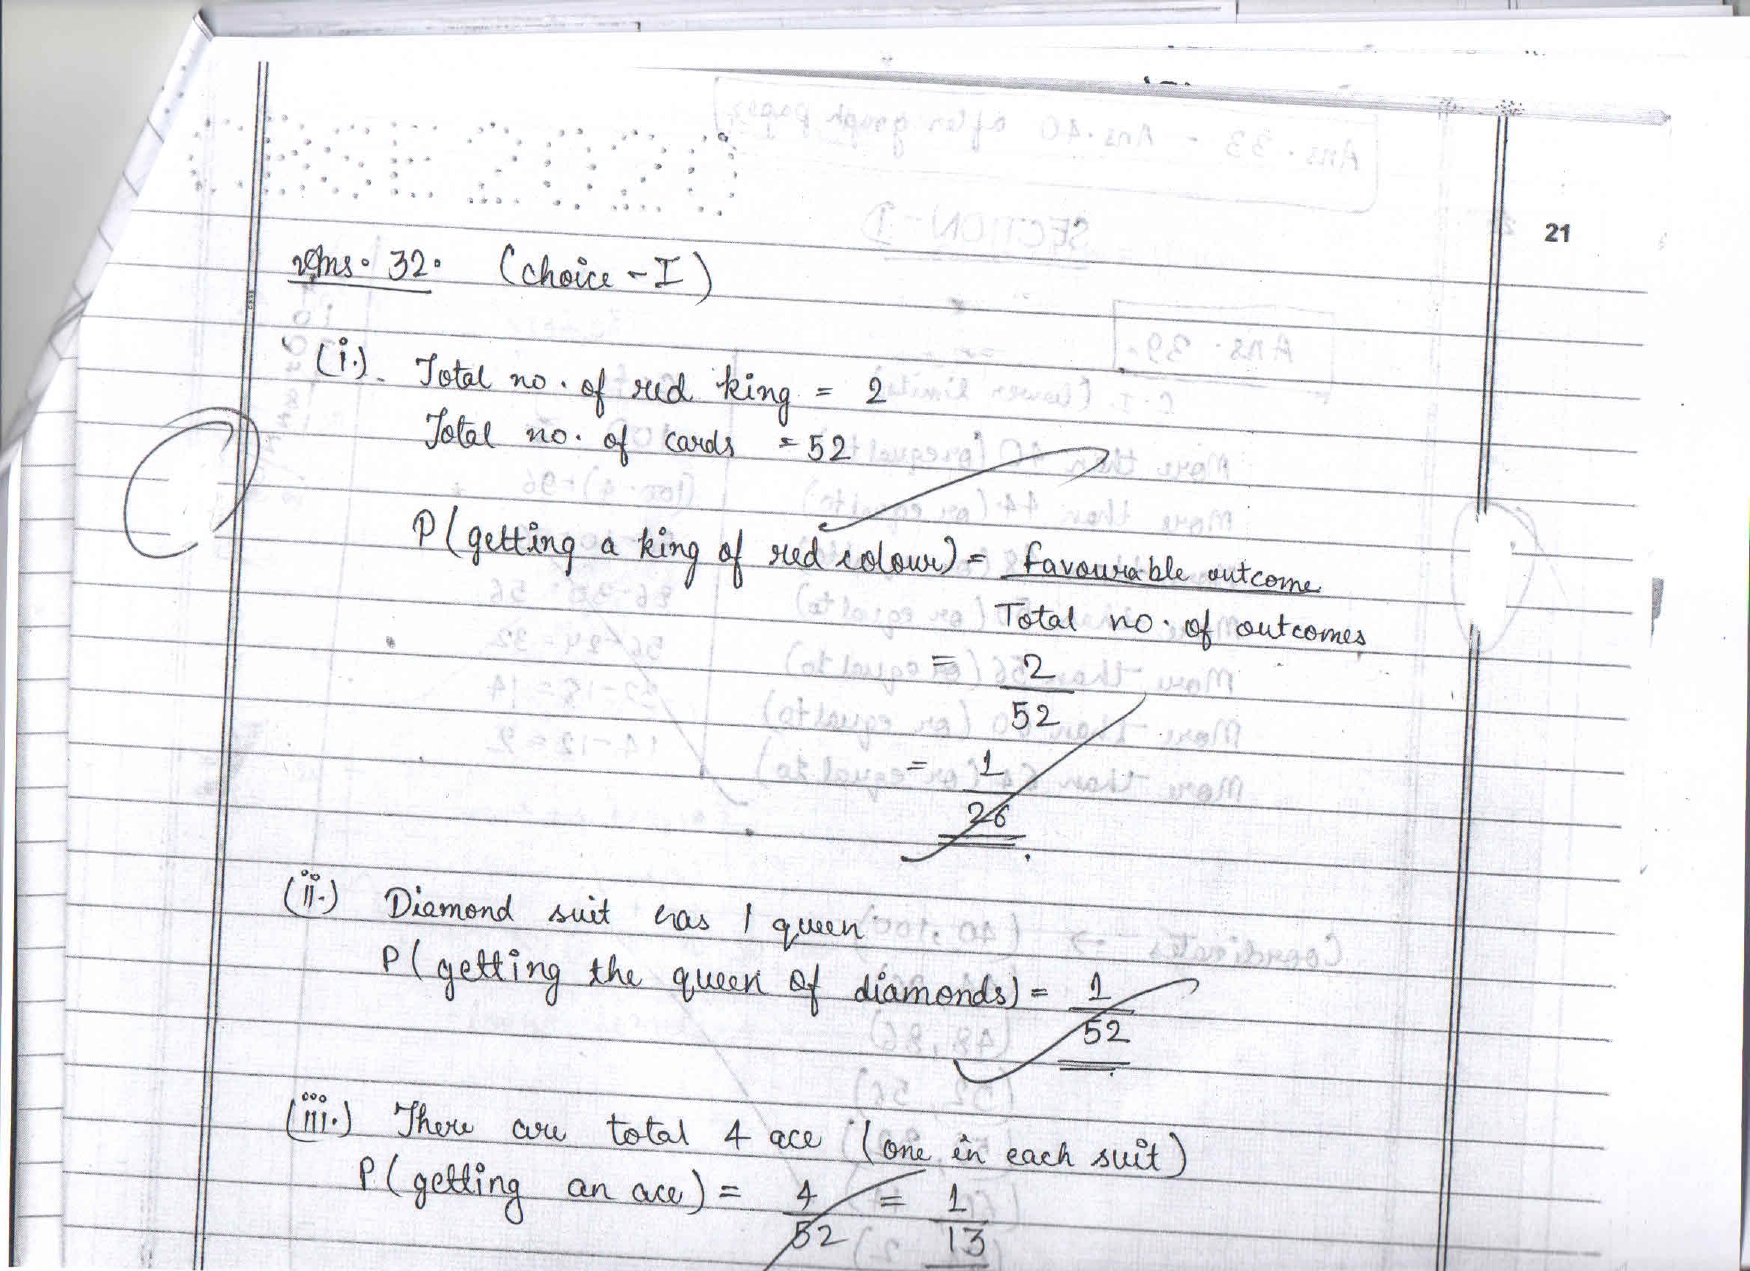 CBSE 2020
21
Ans. 32. (Choice - I)
(i.) Total no. of red king = 2
Total no. of cards = 52
P(getting a king of red colour) = favourable outcome
Total no. of outcomes
= 2
52
= 1
26
(ii.) Diamond suit has 1 queen
P(getting the queen of diamonds) = 1
52
(iii.) There are total 4 ace (one in each suit)
P(getting an ace) = 4 = 1
52 13